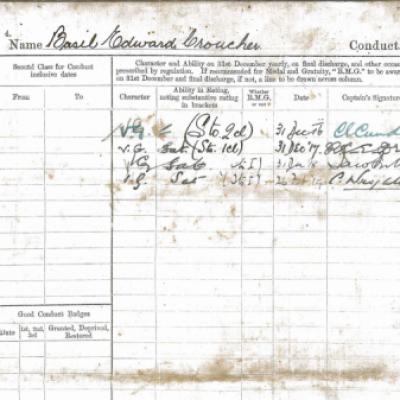 4.
Name Basil Edward Croucher Conduct.
Second Class for Conduct
inclusive dates
Character and Ability on 31st December yearly, on final discharge, and other occas
prescribed by regulation. If recommended for Medal and Gratuity, "R.M.G." to be awar
on 31st December and final discharge, if not, a line to be drawn across column.
From To Character Ability in Rating, noting substantive rating in brackets Whether R.M.G. or not? Date Captain's Signature
V.G. (Sto. 2cl) 31 Dec 16
V.G. Sat (Sto. 1cl) 31 Dec 17
VG Sat 31 Dec 18
V.G. Sat
Good Conduct Badges
Date 1st, 2nd, 3rd Granted, Deprived, Restored